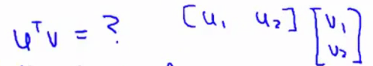 uᵀv = ? [u₁ u₂] [v₁ v₂]